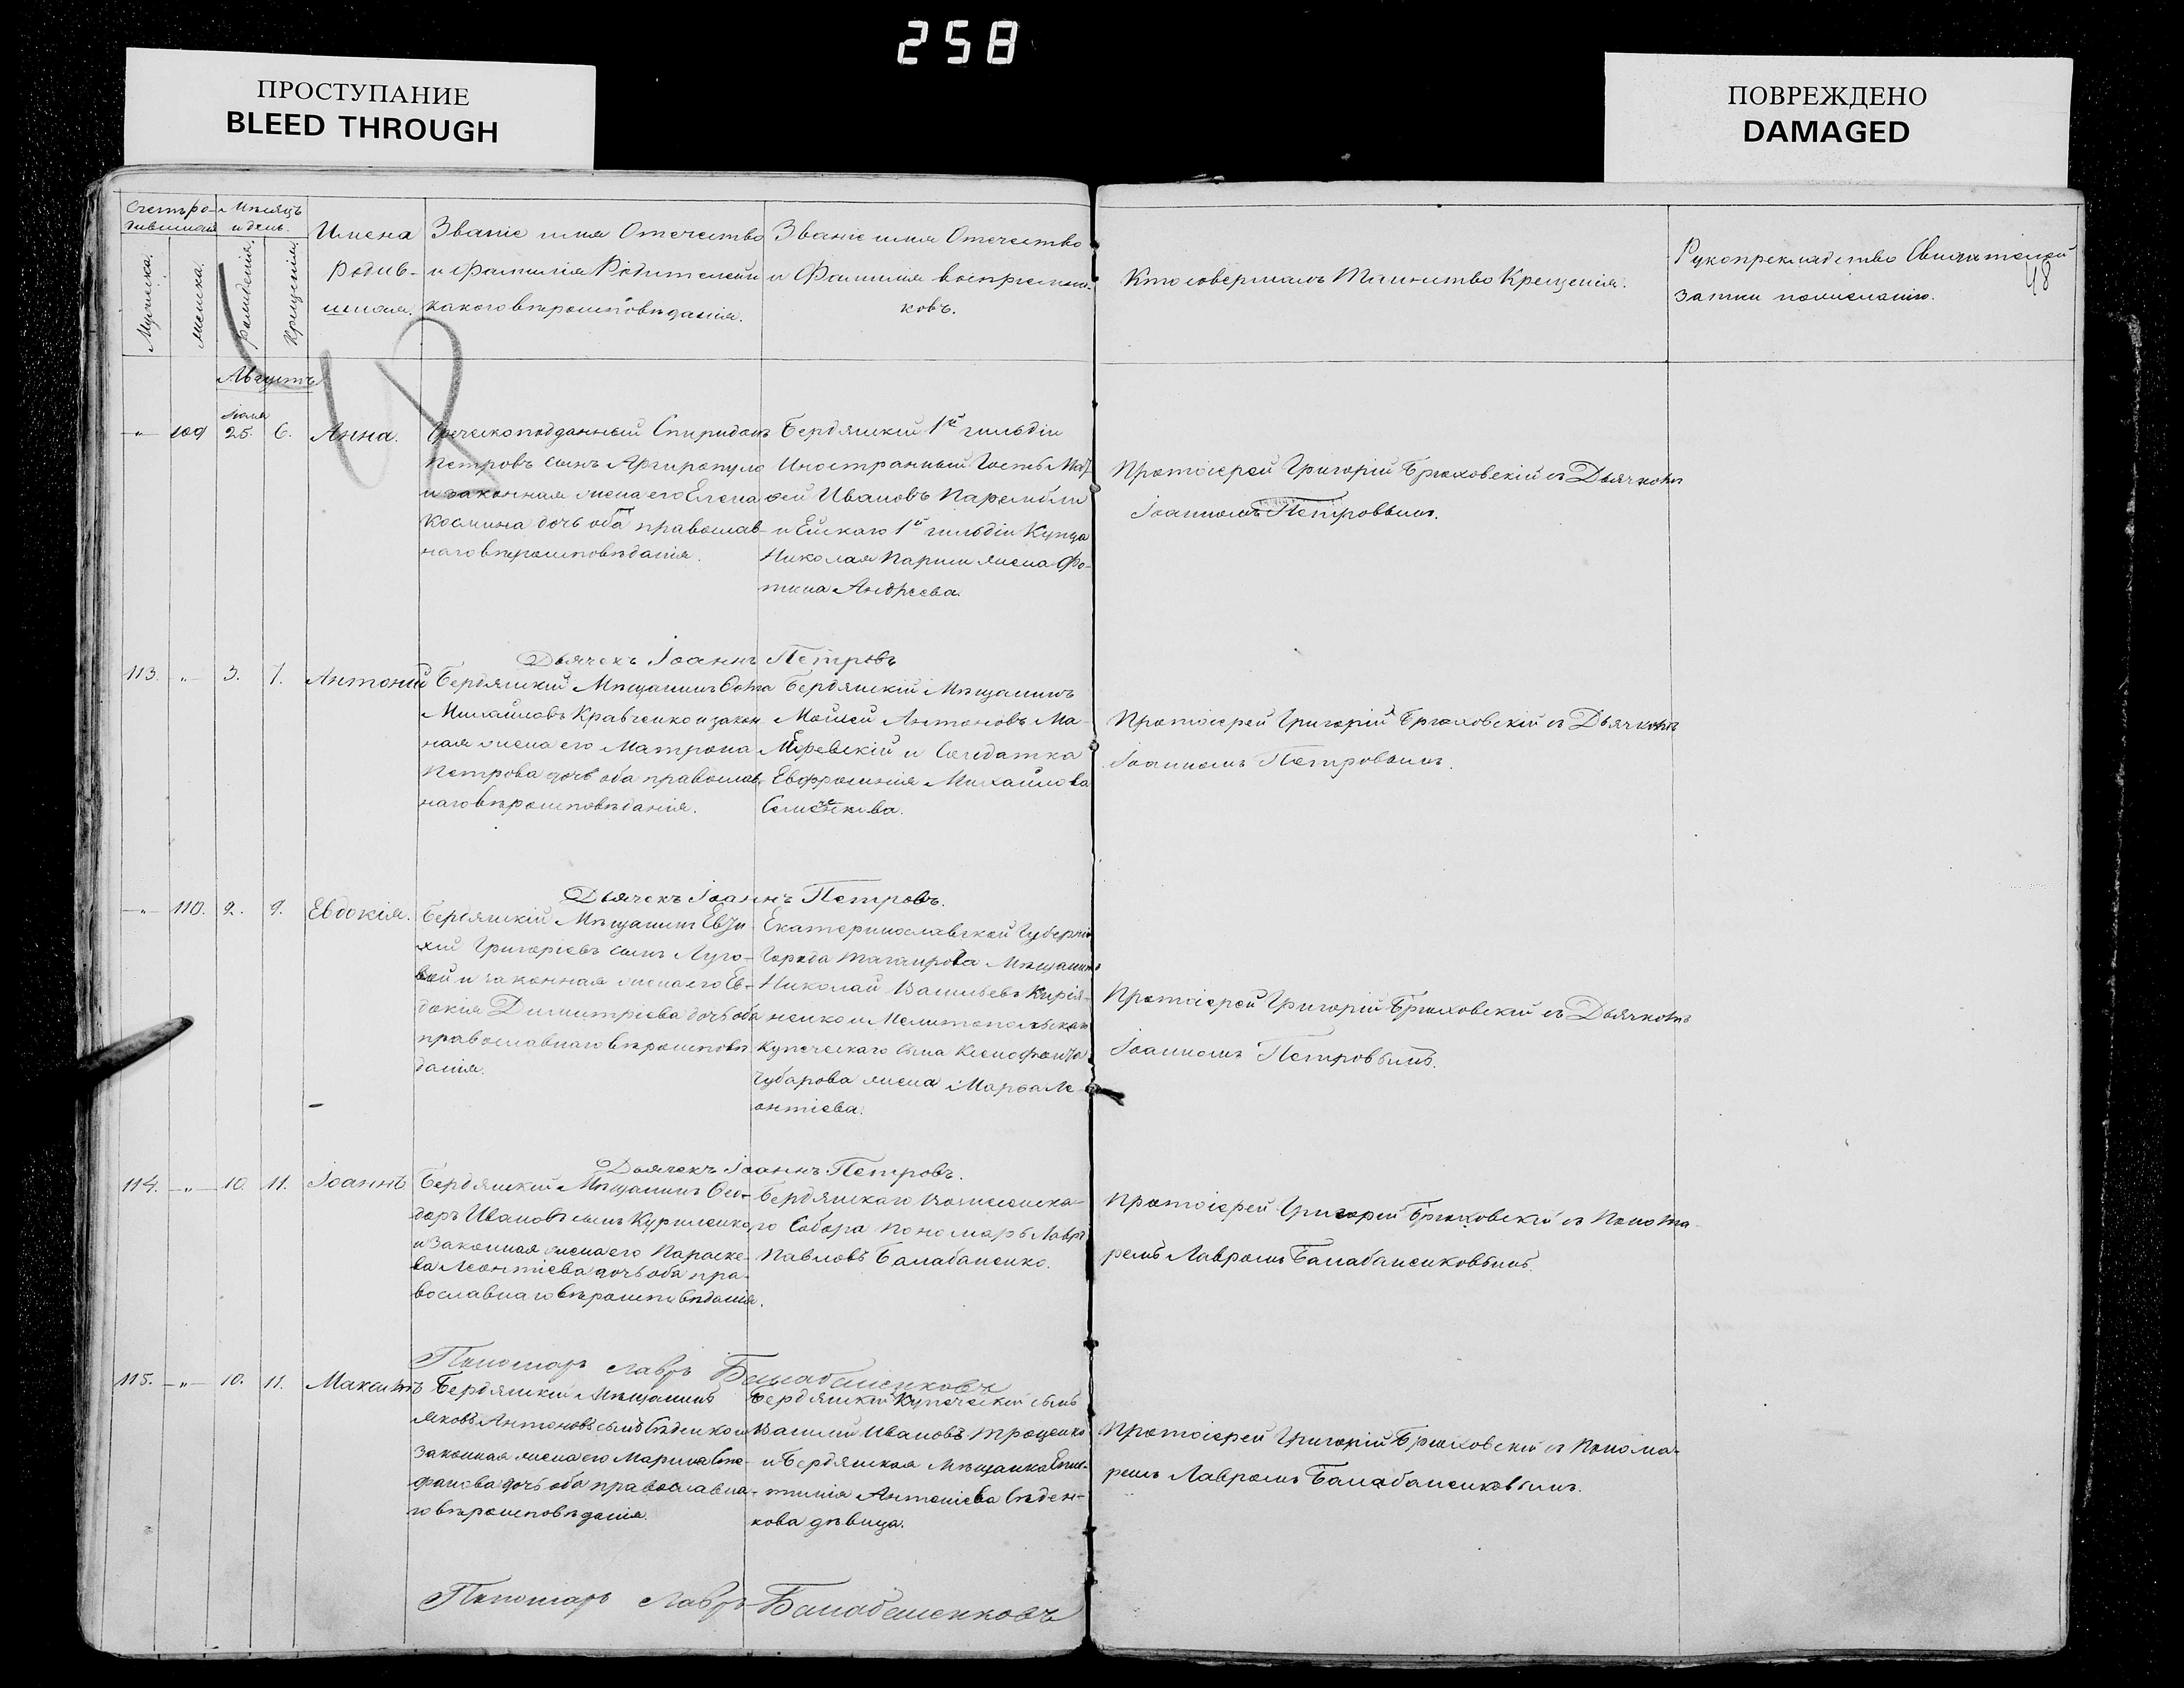 258
ПРОСТУПАНИЕ
BLEED THROUGH
ПОВРЕЖДЕНО
DAMAGED
Счетъ ро-
дившихся
Мужеска.
женска.
Мѣсяцъ
и день.
рожденія.
Крещенія.
Имена
родив-
шихся.
Званіе имя Отечество
и Фамилія Родителей и
какого вѣроисповѣданія.
Званіе имя Отечество
и Фамилія воспріемни-
ковъ.
Кто совершалъ Таинство Крещенія.
Рукоприкладство Свидѣтелей
записи по желанію.
48
Августъ
-"- 109 Іюля 25. 6. Анна.
Греческоподданный Спиридонъ
Петровъ сынъ Аргиропуло
и законная жена его Елена
Космина дочь оба православ-
наго вѣроисповѣданія.
Бердянскій 1й гильдіи
Иностранный Гость Мат-
ѳей Ивановъ Парембли
и Ейскаго 1й гильдіи Купца
Николая Париш жена Фо-
тина Андреева.
Протоіерей Григорій Брюховскій съ Дьячкомъ
Іоанномъ Петровымъ.
Дьячекъ Іоаннъ Петровъ
113. -"- 3. 7. Антоній
Бердянскій Мѣщанинъ Ѳома
Михайловъ Кравченко и закон
ная жена его Матрона
Петрова дочь оба православ
наго вѣроисповѣданія.
Бердянскій Мѣщанинъ
Мойсей Антоновъ Ма-
и Солдатка
Евфросинія Михайлова
Протоіерей Григорій Брюховскій съ Дьячкомъ
Іоанномъ Петровымъ.
Дьячекъ Іоаннъ Петровъ.
-"- 110. 2. 9. Евдокія.
Бердянскій Мѣщанинъ Евти-
хій Григоріевъ сынъ Луго-
вой и законная жена его Ев-
докія Димитріева дочь оба
православнаго вѣроисповѣ
данія.
Екатеринославской Губерніи
Города Таганрога Мѣщанинъ
Николай Васильевъ Кирія-
ненко и Мелитопольскаго
купеческаго сына Ксенофонта
Чубарова жена Марѳа Ле-
онтіева.
Протоіерей Григорій Брюховскій съ Дьячкомъ
Іоанномъ Петровымъ.
Дьячекъ Іоаннъ Петровъ.
114. -"- 10. 11. Іоаннъ
Бердянскій Мѣщанинъ Ѳео-
доръ Ивановъ сынъ Куриленко
и Законная жена его Параске-
ва Леонтіева дочь оба пра-
вославнаго вѣроисповѣданія.
Бердянскаго Вознесенска-
го Собора Пономарь Лавръ
Павловъ Балабаненко.
Протоіерей Григорій Брюховскій съ Понома-
ремъ Лавромъ Балабаненковымъ.
Пономарь Лавръ Балабаненковъ
115. -"- 10. 11. Максимъ
Бердянскій Мѣщанинъ
Яковъ Антоновъ сынъ Сѣденко и
Законная жена его Марина Сте-
фанова дочь оба православна-
го вѣроисповѣданія.
Бердянскій Купеческій сынъ
Василій Ивановъ Троценко
и Бердянская Мѣщанка
Антоніева Сѣден-
кова дѣвица.
Протоіерей Григорій Брюховскій съ Понома-
ремъ Лавромъ Балабаненковымъ.
Пономарь Лавръ Балабаненковъ